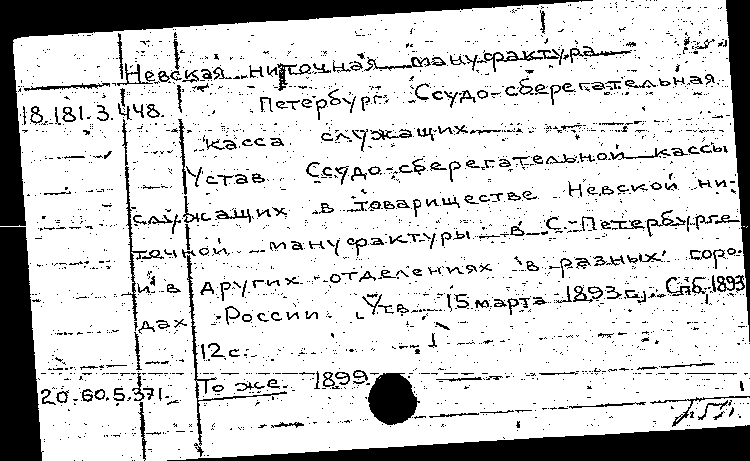 Невская ниточная мануфактура
18.181.3.448. Петербург. Ссудо-сберегательная
касса служащих.
Устав Ссудо-сберегательной кассы
служащих в товариществе Невской ни-
точной мануфактуры в С.-Петербурге
и в других отделениях в разных горо-
дах России. Утв. 15 марта 1893 г., Спб, 1893
12 с.
20.60.5.371. То же. 1899